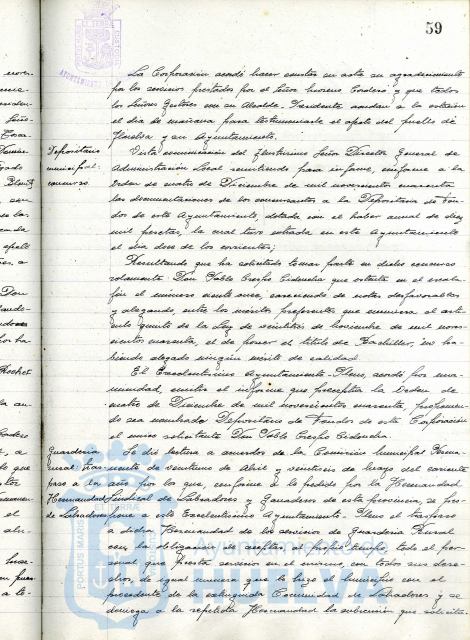 59
La Corporación acordó hacer constar en acta su agradecimiento
por los servicios prestados por el Señor Moreno Cordero y que todos
los Señores Gestores con su Alcalde-Presidente acudan a la estación
el día de mañana para testimoniarle el afecto del pueblo de
Huelva y su Ayuntamiento.
Depositario
municipal:
concurso.
Vista comunicación del Ilustrísimo Señor Director General de
Administración Local remitiendo para informe, conforme a la
Orden de cuatro de Diciembre de mil novecientos cuarenta
las documentaciones de los concursantes a la Depositaría de Fon-
dos de este Ayuntamiento, dotada con el haber anual de diez
mil pesetas, la cual tuvo entrada en este Ayuntamiento
el día doce de los corrientes;
Resultando que ha solicitado tomar parte en dicho concurso
solamente Don Pablo Crespo que ostenta en el escala-
fón el número ciento once, careciendo de notas desfavorables
y alegando, entre los méritos preferentes que enumera el artí-
culo quinto de la Ley de veintitrés de Noviembre de mil nove-
cientos cuarenta, el de poseer el título de Bachiller, no ha-
biendo alegado ningún mérito de calidad.
El Excelentísimo Ayuntamiento Pleno, acordó por una-
nimidad, emitir el informe que preceptúa la Orden de
cuatro de Diciembre de mil novecientos cuarenta, proponien-
do sea nombrado Depositario de Fondos de esta Corporación
el único solicitante Don Pablo Crespo
Guardería
rural: tras-
paso a la
Hermandad
de Labradores
Se dió lectura a acuerdos de la Comisión Municipal Perma-
nente de veintiuno de Abril y veintiseis de Mayo del corriente
año por los que, conforme a lo pedido por la Hermandad
Sindical de Labradores y Ganaderos de esta provincia, se pro-
pone a este Excelentísimo Ayuntamiento Pleno el traspaso
a dicha Hermandad de los servicios de Guardería Rural
con la obligación de aceptar al propio tiempo todo el per-
sonal que presta servicio en el mismo con todos sus dere-
chos, de igual manera que lo hizo el Municipio con el
procedente de la extinguida Comunidad de Labradores y se
deniega a la repetida Hermandad la subvención que solicita-
Ayuntamiento de
HUELVA
PORTUS MARIS